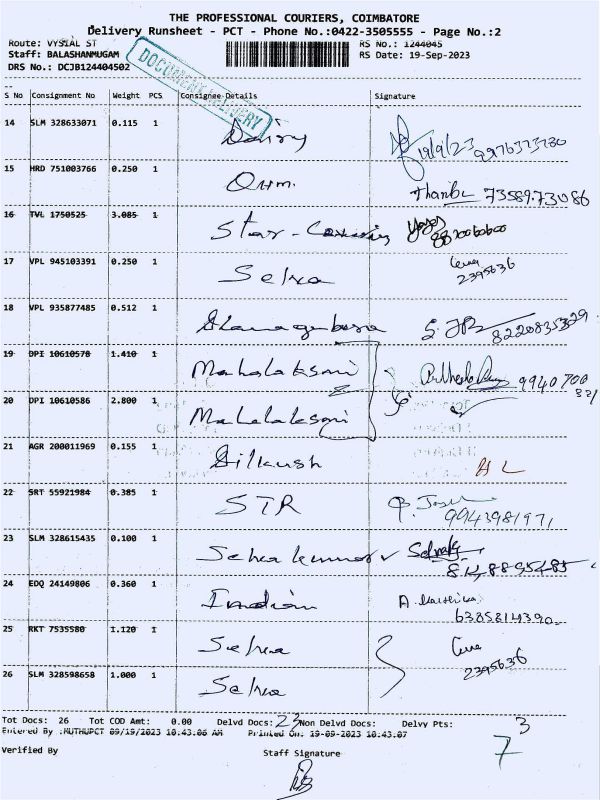 THE PROFESSIONAL COURIERS, COIMBATORE
Delivery Runsheet - PCT - Phone No.:0422-3505555 - Page No.:2
Route: VYSIAL ST
RS No.: 1244045
Staff: BALASHANMUGAM
RS Date: 19-Sep-2023
DRS No.: DCJB124404502
DOCUMENT DELIVERY
S No Consignment No Weight PCS Consignee Details Signature
14 SLM 328633071 0.115 1
19/9/23 9976373780
15 HRD 751003766 0.250 1
73589.73086
16 TVL 1750525 3.085 1 Star-
17 VPL 945103391 0.250 1 Selva
2395636
18 VPL 935877485 0.512 1
8220835329
19 DPI 10610578 1.410 1 Mahalaksmi
9940700
321
20 DPI 10610586 2.800 1 Mahalaksmi
21 AGR 200011969 0.155 1 Dilkush
22 SRT 55921984 0.385 1 STR
9943981971
23 SLM 328615435 0.100 1 Selvakumar
24 EDQ 24149806 0.360 1 Indian
6385814390
25 RKT 7535580 1.120 1 Selva
2395636
26 SLM 328598658 1.000 1 Selva
Tot Docs: 26 Tot COD Amt: 0.00 Delvd Docs: 23 Non Delvd Docs: 3 Delvy Pts: 7
Entered By :MUTHUPCT 09/19/2023 10:43:06 AM Printed On: 19-09-2023 10:43:07
Verified By
Staff Signature